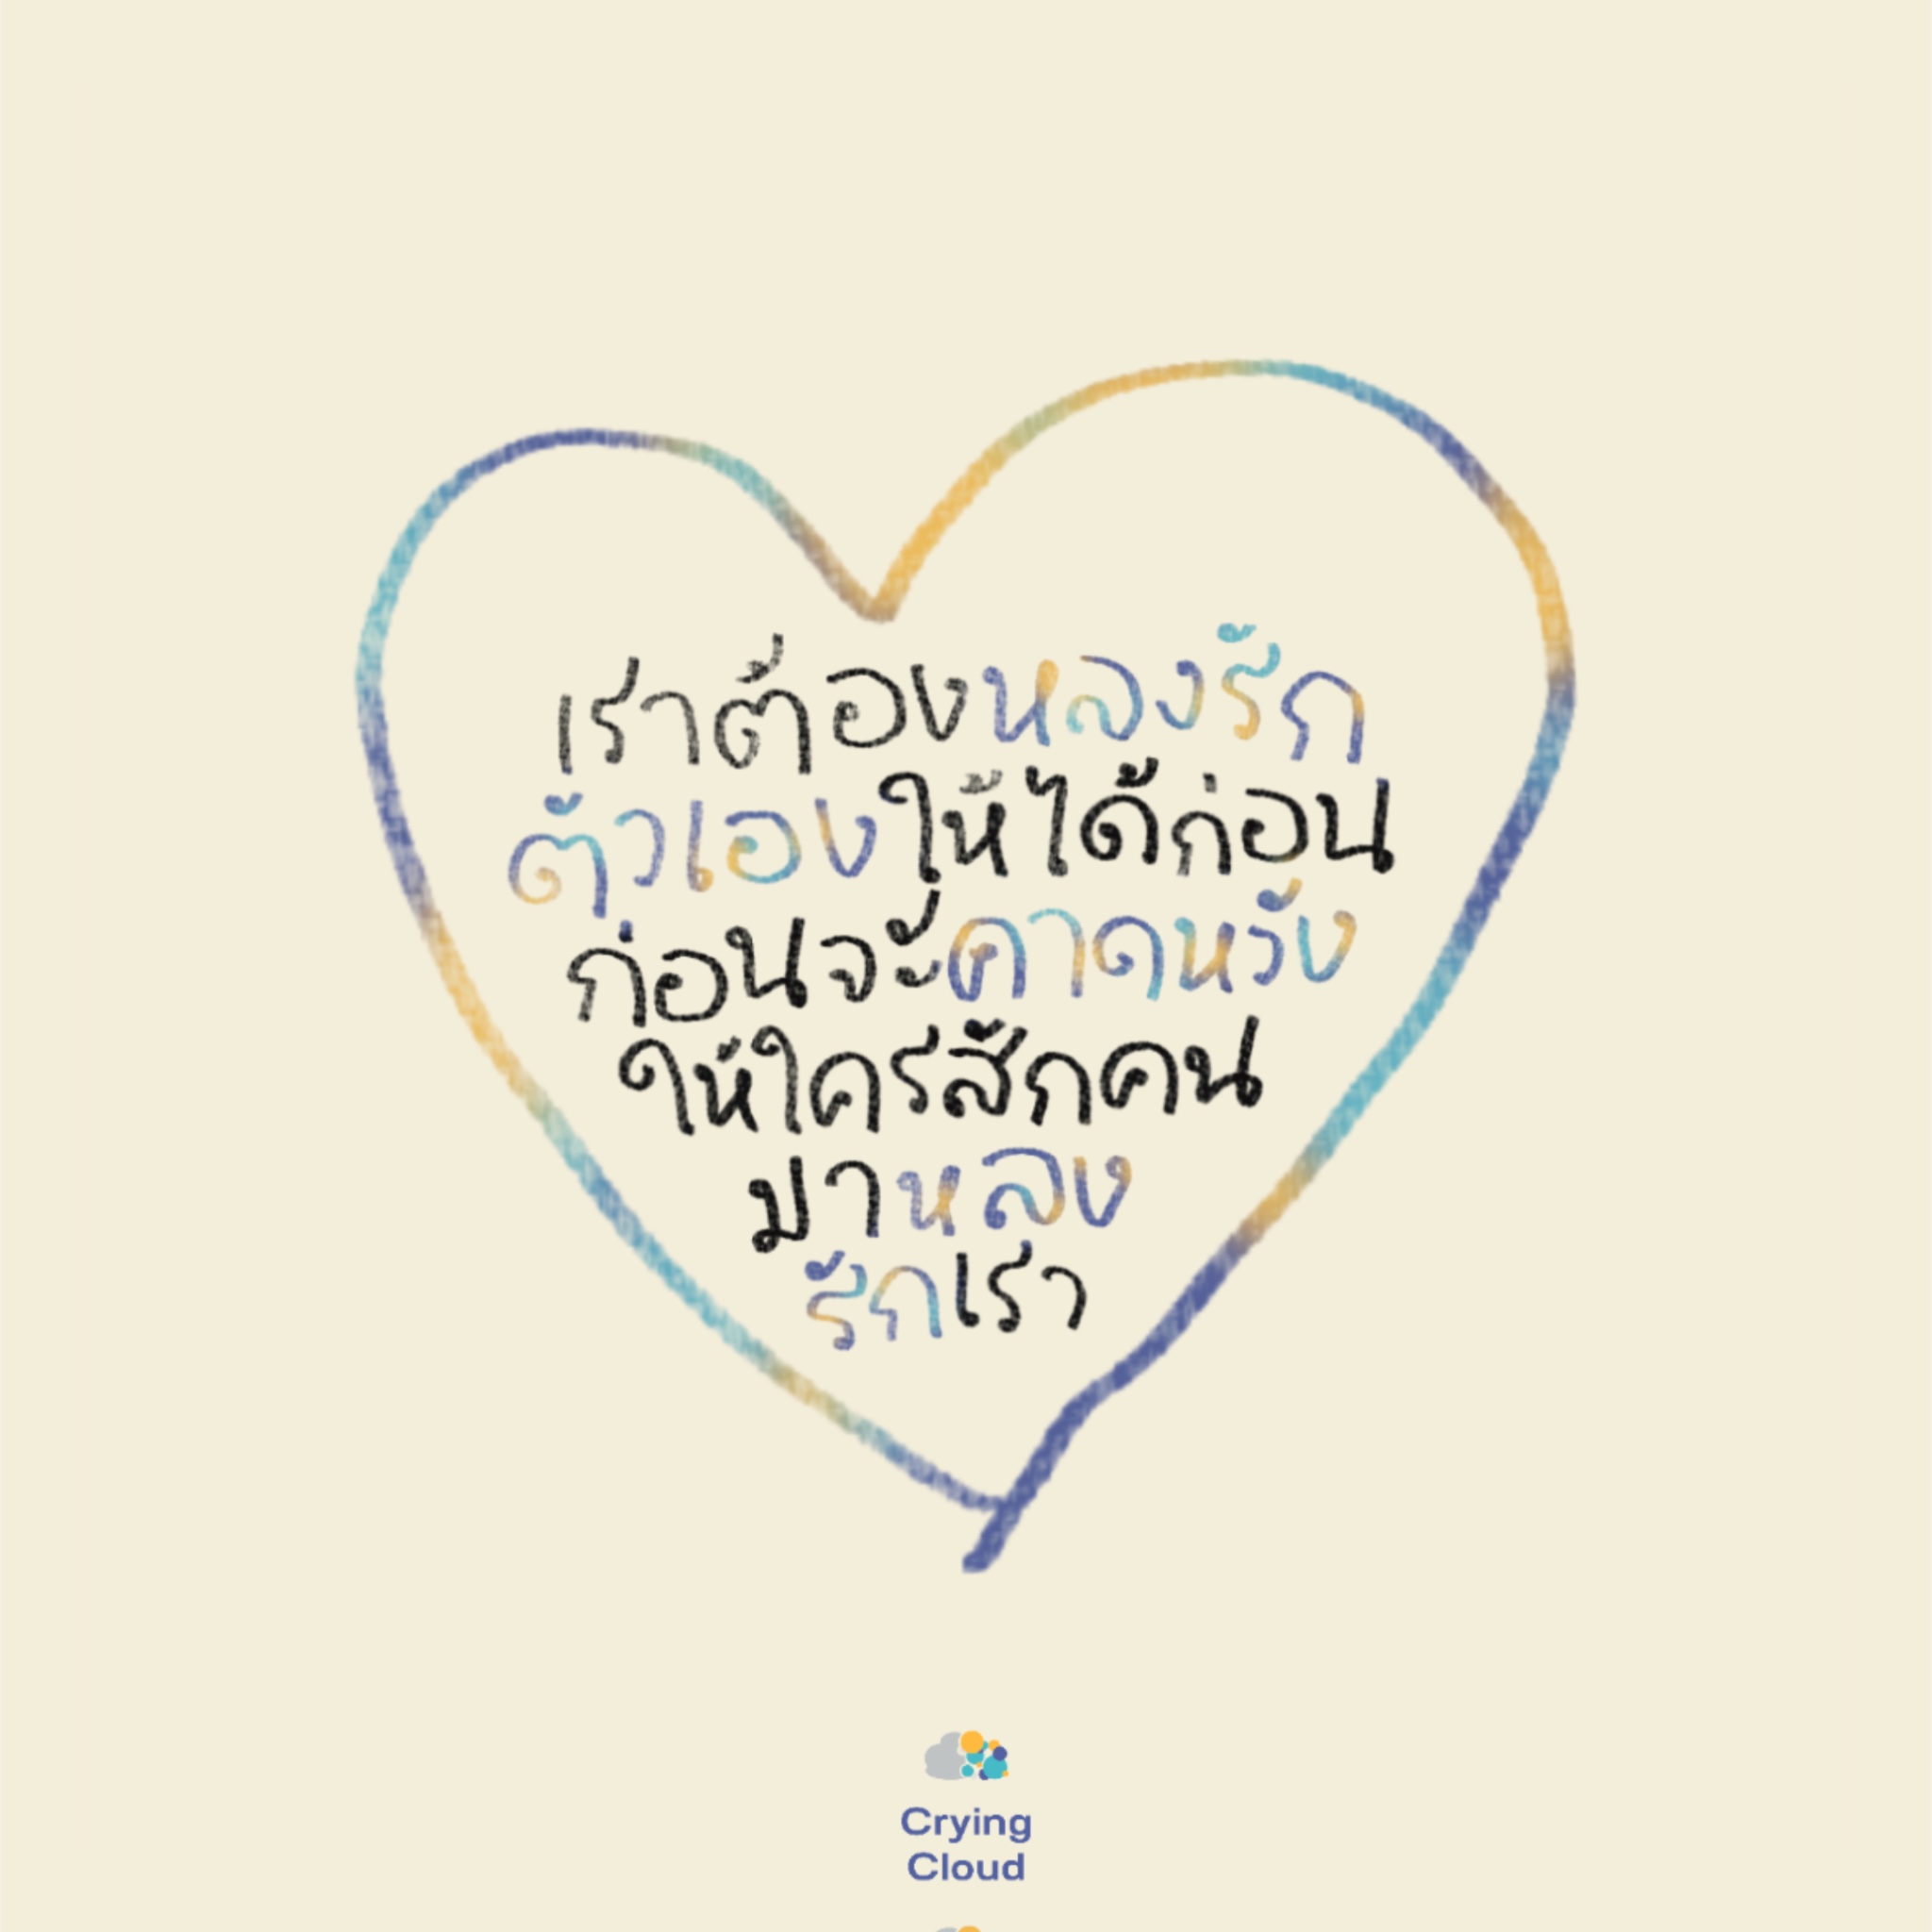 เราต้องหลงรัก
ตัวเองให้ได้ก่อน
ก่อนจะคาดหวัง
ให้ใครสักคน
มาหลง
รักเรา
Crying
Cloud